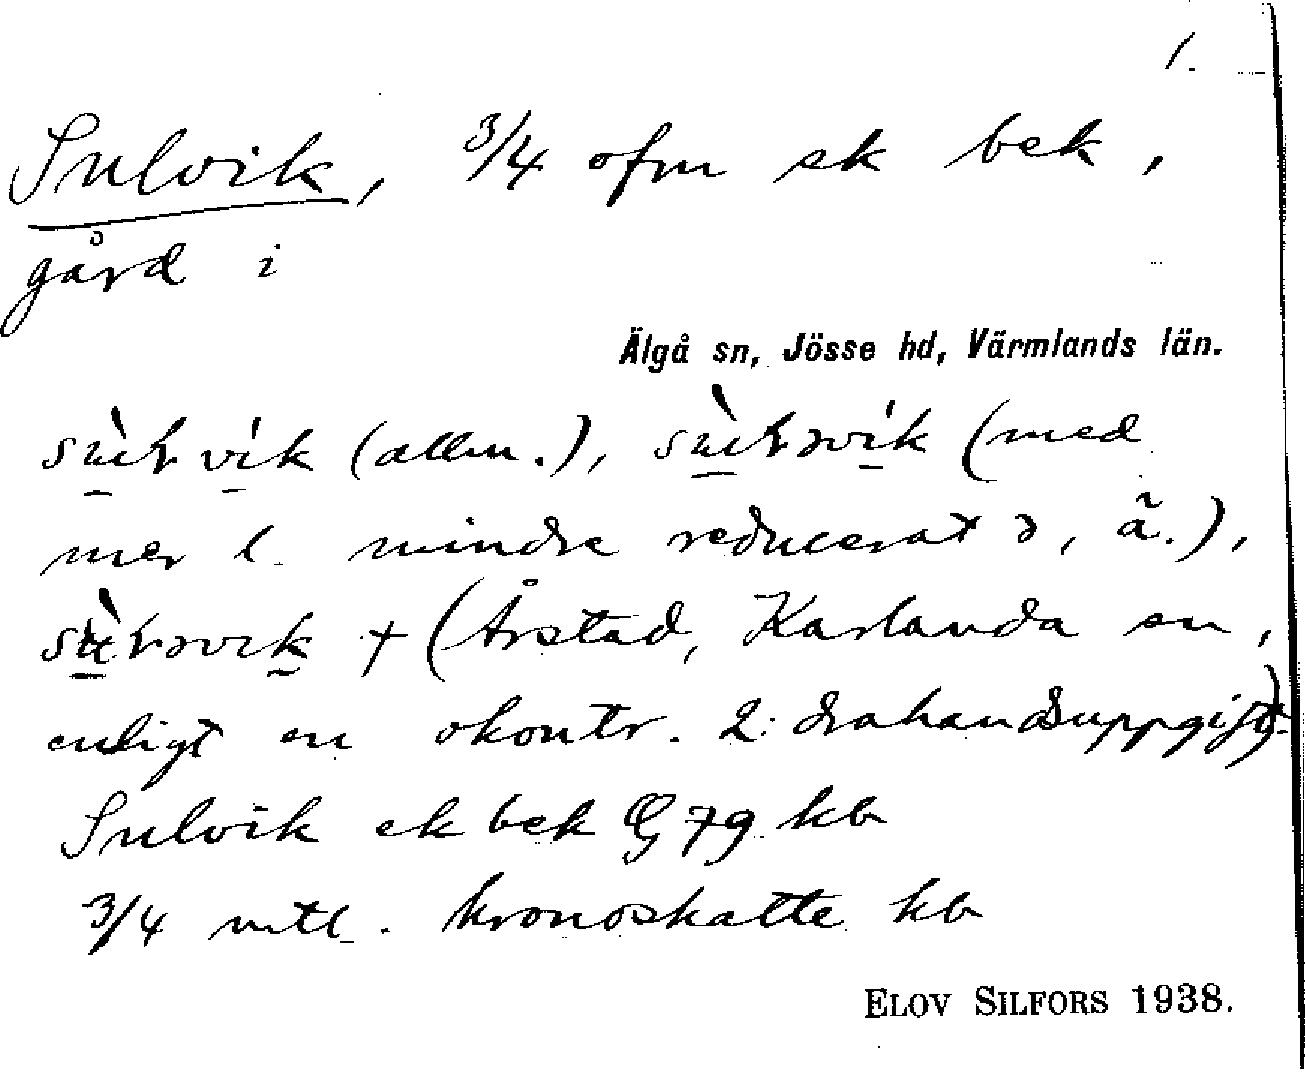 1.
Sulvik, 3/4 ofm ek bek,
gård i
Älgå sn, Jösse hd, Värmlands län.
(allm.), (med
mer l. mindre reducerat ə, ä.),
+ (Årstad, Karlanda sn,
enligt en okontr. 2:drahandsuppgift).
Sulvik ek bek G 79 kb
3/4 mtl. kronoskatte kb
ELOV SILFORS 1938.